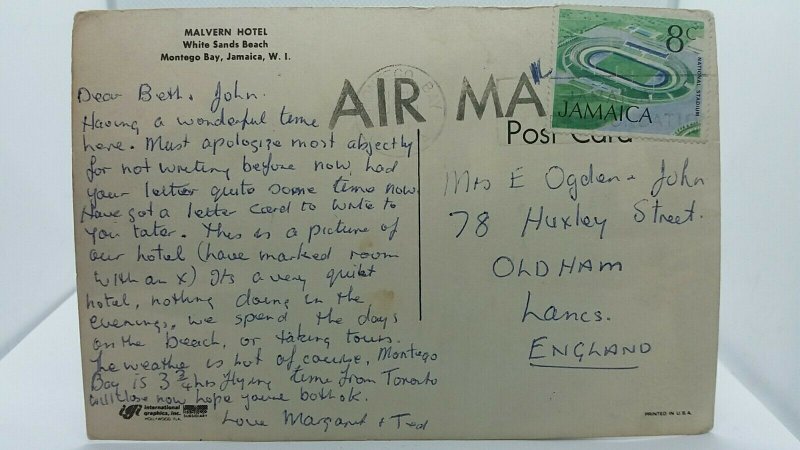 MALVERN HOTEL
White Sands Beach
Montego Bay, Jamaica, W. I.
Dear Beth & John.
Having a wonderful time
here. Must apologize most abjectly
for not writing before now, had
your letter quite some time now.
Have got a letter card to write to
you later. This is a picture of
our hotel (have marked room
with an x) Its a very quiet
hotel, nothing doing in the
evenings, we spend the days
on the beach, or taking tours.
The weather is hot of course, Montego
Bay is 3 3/4 hrs flying time from Toronto
will close now hope you're both ok.
Love Margaret + Ted
igi international
graphics, inc.
HOLLYWOOD, FLA.
SUBSIDIARY
AIR MA
Post Card
8c
NATIONAL STADIUM
JAMAICA
Mrs E Ogden & John
78 Huxley Street.
OLDHAM
Lancs.
ENGLAND
PRINTED IN U.S.A.